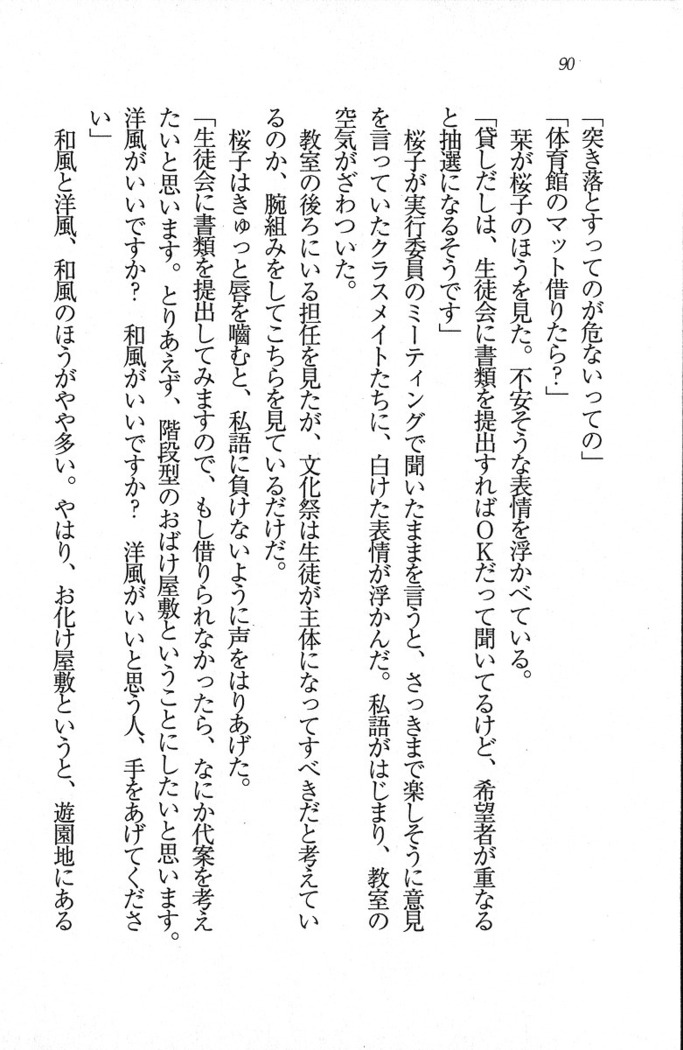 90
「突き落とすってのが危ないっての」
「体育館のマット借りたら？」
　栞が桜子のほうを見た。不安そうな表情を浮かべている。
「貸しだしは、生徒会に書類を提出すればＯＫだって聞いてるけど、希望者が重なる
と抽選になるそうです」
　桜子が実行委員のミーティングで聞いたままを言うと、さっきまで楽しそうに意見
を言っていたクラスメイトたちに、白けた表情が浮かんだ。私語がはじまり、教室の
空気がざわついた。
　教室の後ろにいる担任を見たが、文化祭は生徒が主体になってすべきだと考えてい
るのか、腕組みをしてこちらを見ているだけだ。
　桜子はきゅっと唇を噛むと、私語に負けないように声をはりあげた。
「生徒会に書類を提出してみますので、もし借りられなかったら、なにか代案を考え
たいと思います。とりあえず、階段型のおばけ屋敷ということにしたいと思います。
洋風がいいですか？　和風がいいですか？　洋風がいいと思う人、手をあげてくださ
い」
　和風と洋風、和風のほうがやや多い。やはり、お化け屋敷というと、遊園地にある